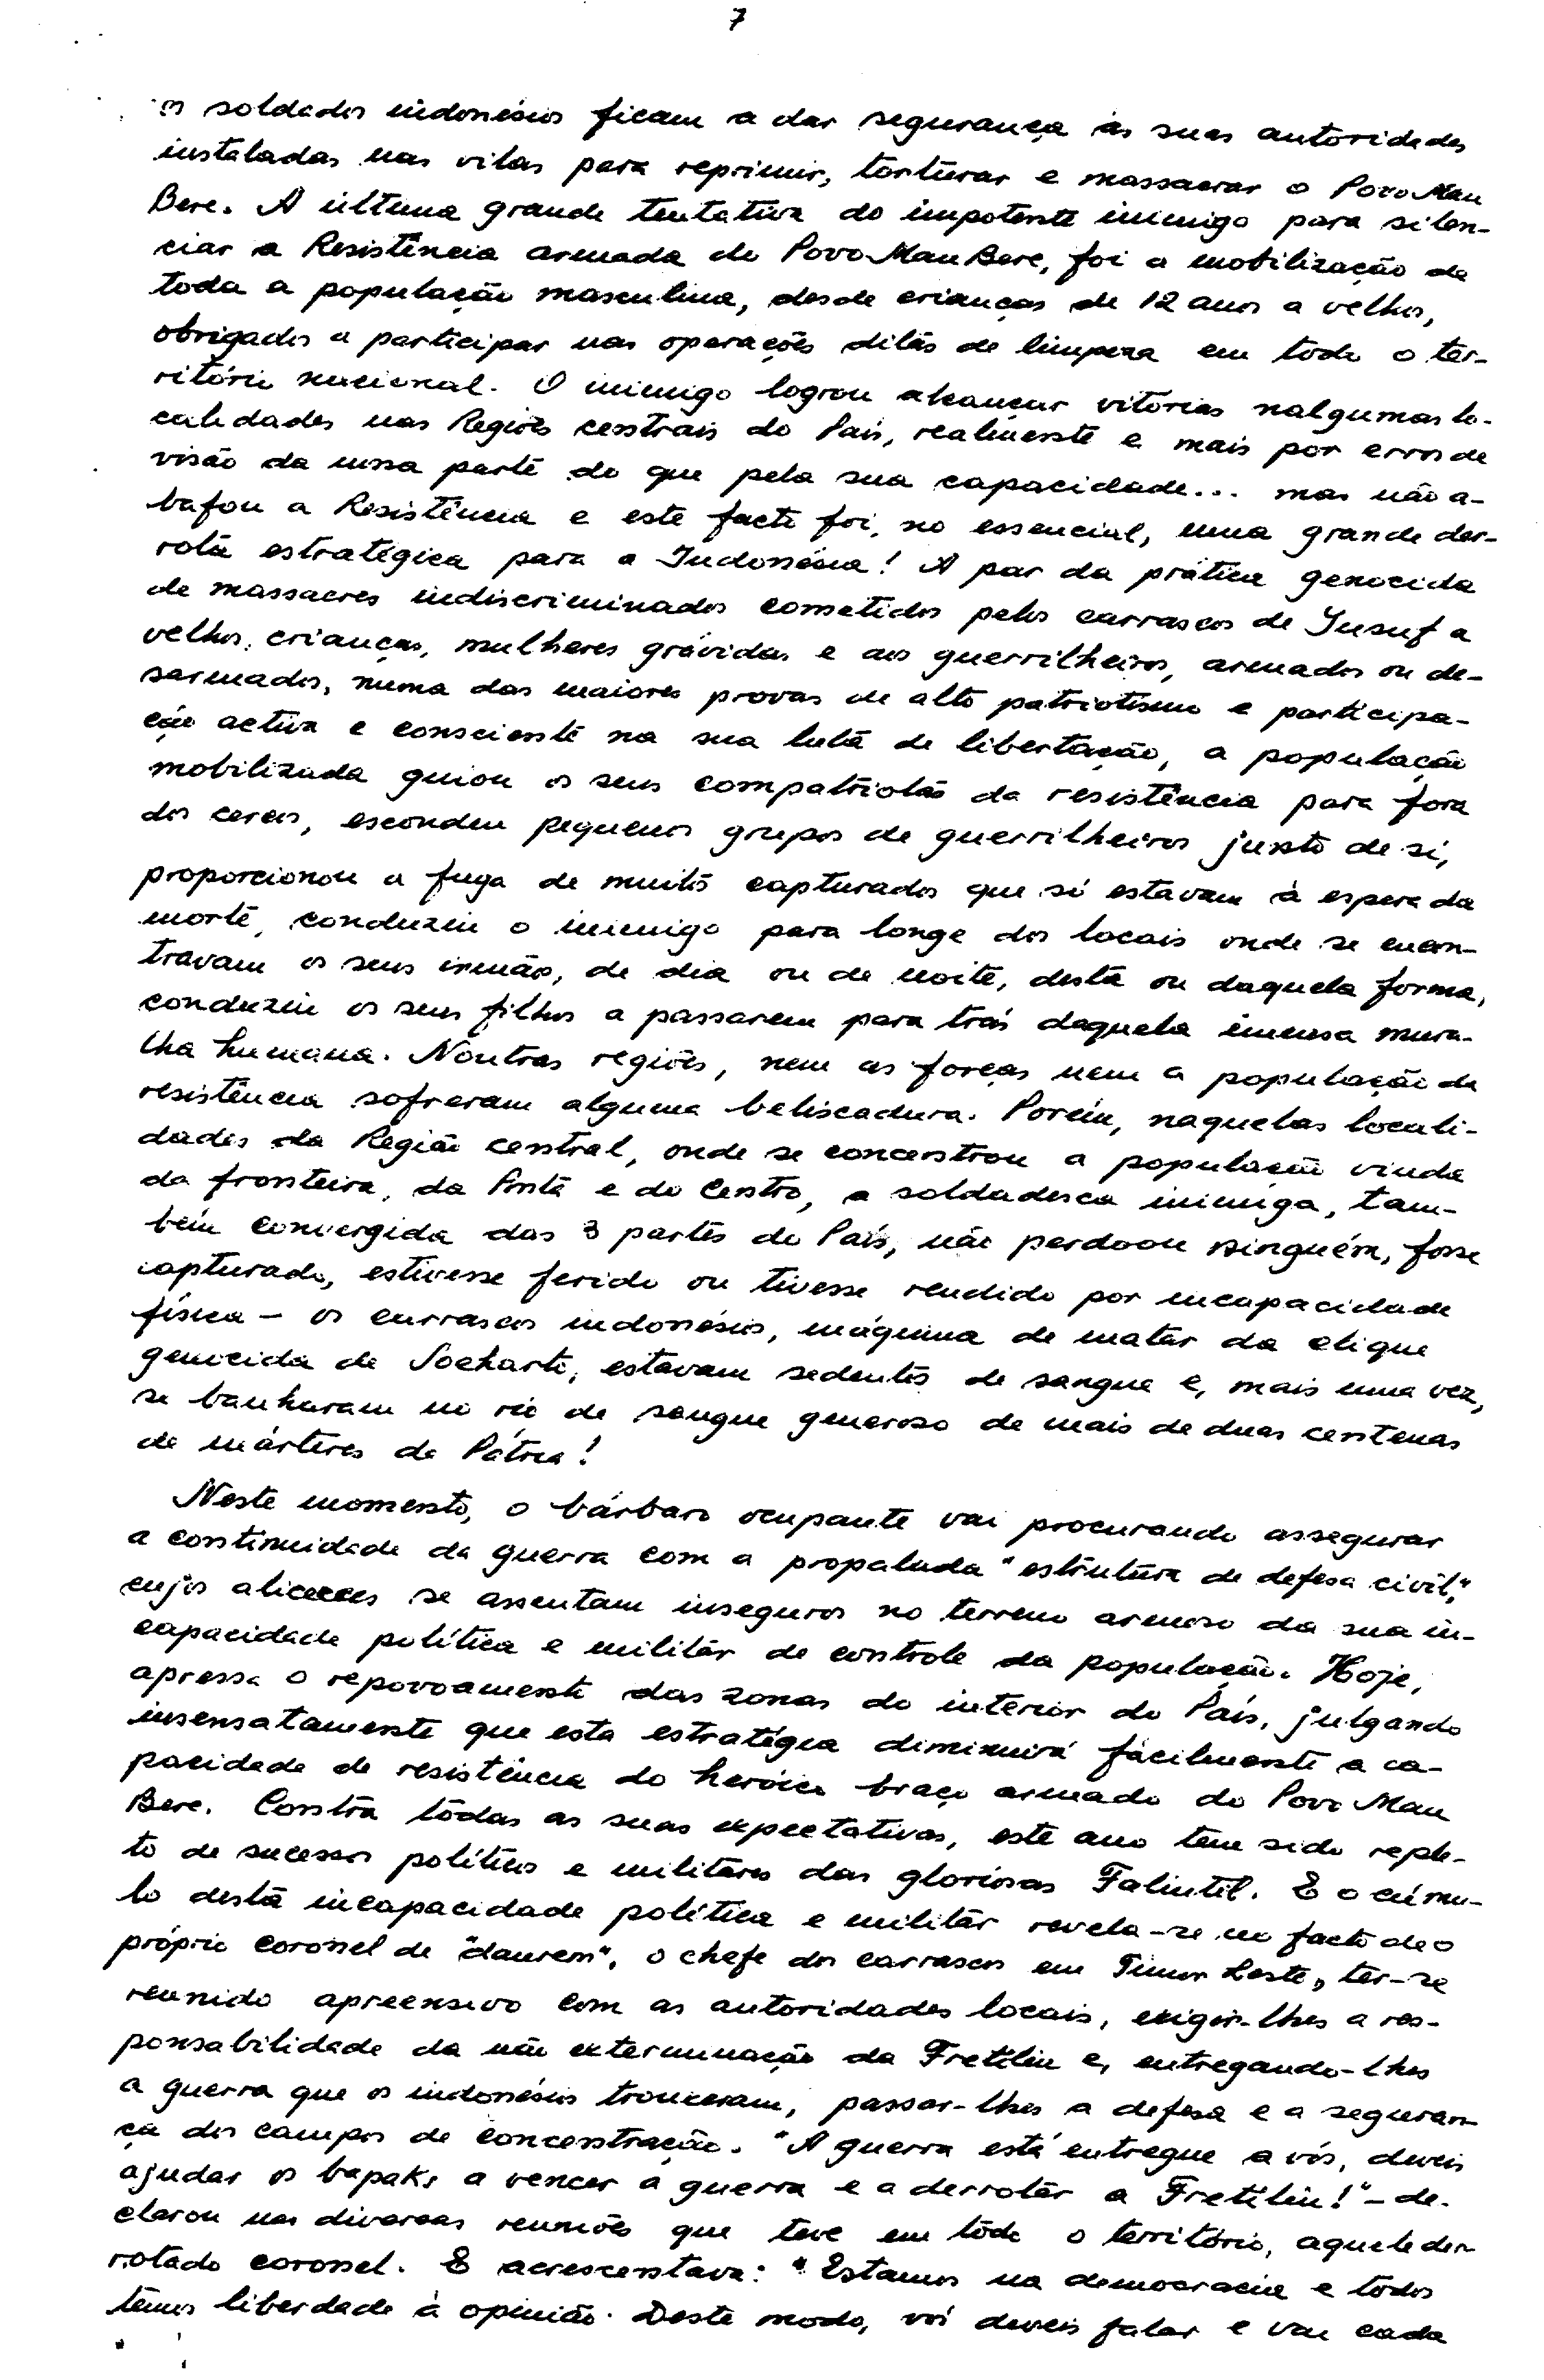 7
os soldados indonésios ficam a dar segurança às suas autoridades
instaladas nas vilas para reprimir, torturar e massacrar o Povo Mau
Bere. A última grande tentativa do impotente inimigo para silen-
ciar a Resistência armada do Povo Mau Bere, foi a mobilização de
toda a população masculina, desde crianças de 12 anos a velhos,
obrigados a participar nas operações ditas de limpeza em todo o ter-
ritório nacional. O inimigo logrou alcançar vitórias nalgumas lo-
calidades nas Regiões centrais do País, realmente e mais por erros de
visão da nossa parte do que pela sua capacidade... mas não a-
bafou a Resistência e este facto foi, no essencial, uma grande der-
rota estratégica para a Indonésia! A par da prática genocida
de massacres indiscriminados cometidos pelos carrascos de Jusuf a
velhos, crianças, mulheres grávidas e aos guerrilheiros, armados ou de-
sarmados, numa das maiores provas de alto patriotismo e participa-
ção activa e consciente na sua luta de libertação, a população
mobilizada guiou os seus compatriotas da resistência para fora
dos cercos, escondeu pequenos grupos de guerrilheiros junto de si,
proporcionou a fuga de muitos capturados que só estavam à espera da
morte, conduziu o inimigo para longe dos locais onde se encon-
travam os seus irmãos, de dia ou de noite, desta ou daquela forma,
conduziu os seus filhos a passarem para trás daquela imensa mura-
lha humana. Noutras regiões, nem as forças nem a população da
resistência sofreram alguma beliscadura. Porém, naquelas locali-
dades da Região central, onde se concentrou a população vinda
da fronteira, da Ponta e do Centro, a soldadesca inimiga, tam-
bém convergida das 3 partes do País, não perdoou ninguém, fosse
capturado, estivesse ferido ou tivesse rendido por incapacidade
física — os carrascos indonésios, máquina de matar da clique
genocida de Soeharto, estavam sedentos de sangue e, mais uma vez,
se banharam no rio de sangue generoso de mais de duas centenas
de mártires da Pátria!
Neste momento, o bárbaro ocupante vai procurando assegurar
a continuidade da guerra com a propalada "estrutura de defesa civil",
cujos alicerces se assentam inseguros no terreno arenoso da sua in-
capacidade política e militar de controle da população. Hoje,
apressa o repovoamento das zonas do interior do País, julgando
insensatamente que esta estratégia diminuirá fàcilmente a ca-
pacidade de resistência do heróico braço armado do Povo Mau
Bere. Contra tôdas as suas expectativas, este ano tem sido reple-
to de sucessos políticos e militares das gloriosas Falintil. E o cúmu-
lo desta incapacidade política e militar revela-se no facto de o
próprio coronel de "daurem", o chefe dos carrascos em Timor Leste, ter-se
reunido apreensivo com as autoridades locais, exigir-lhes a res-
ponsabilidade da não exterminação da Fretilin e, entregando-lhes
a guerra que os indonésios trouxeram, passar-lhes a defesa e a seguran-
ça dos campos de concentração. "A guerra está entregue a vós, deveis
ajudar os bapaks a vencer a guerra e a derrotar a Fretilin!" — de-
clarou nas diversas reuniões que teve em tôdo o território, aquele der-
rotado coronel. E acrescentava: "Estamos na democracia e todos
temos liberdade à opinião. Deste modo, vós deveis falar e vou cada